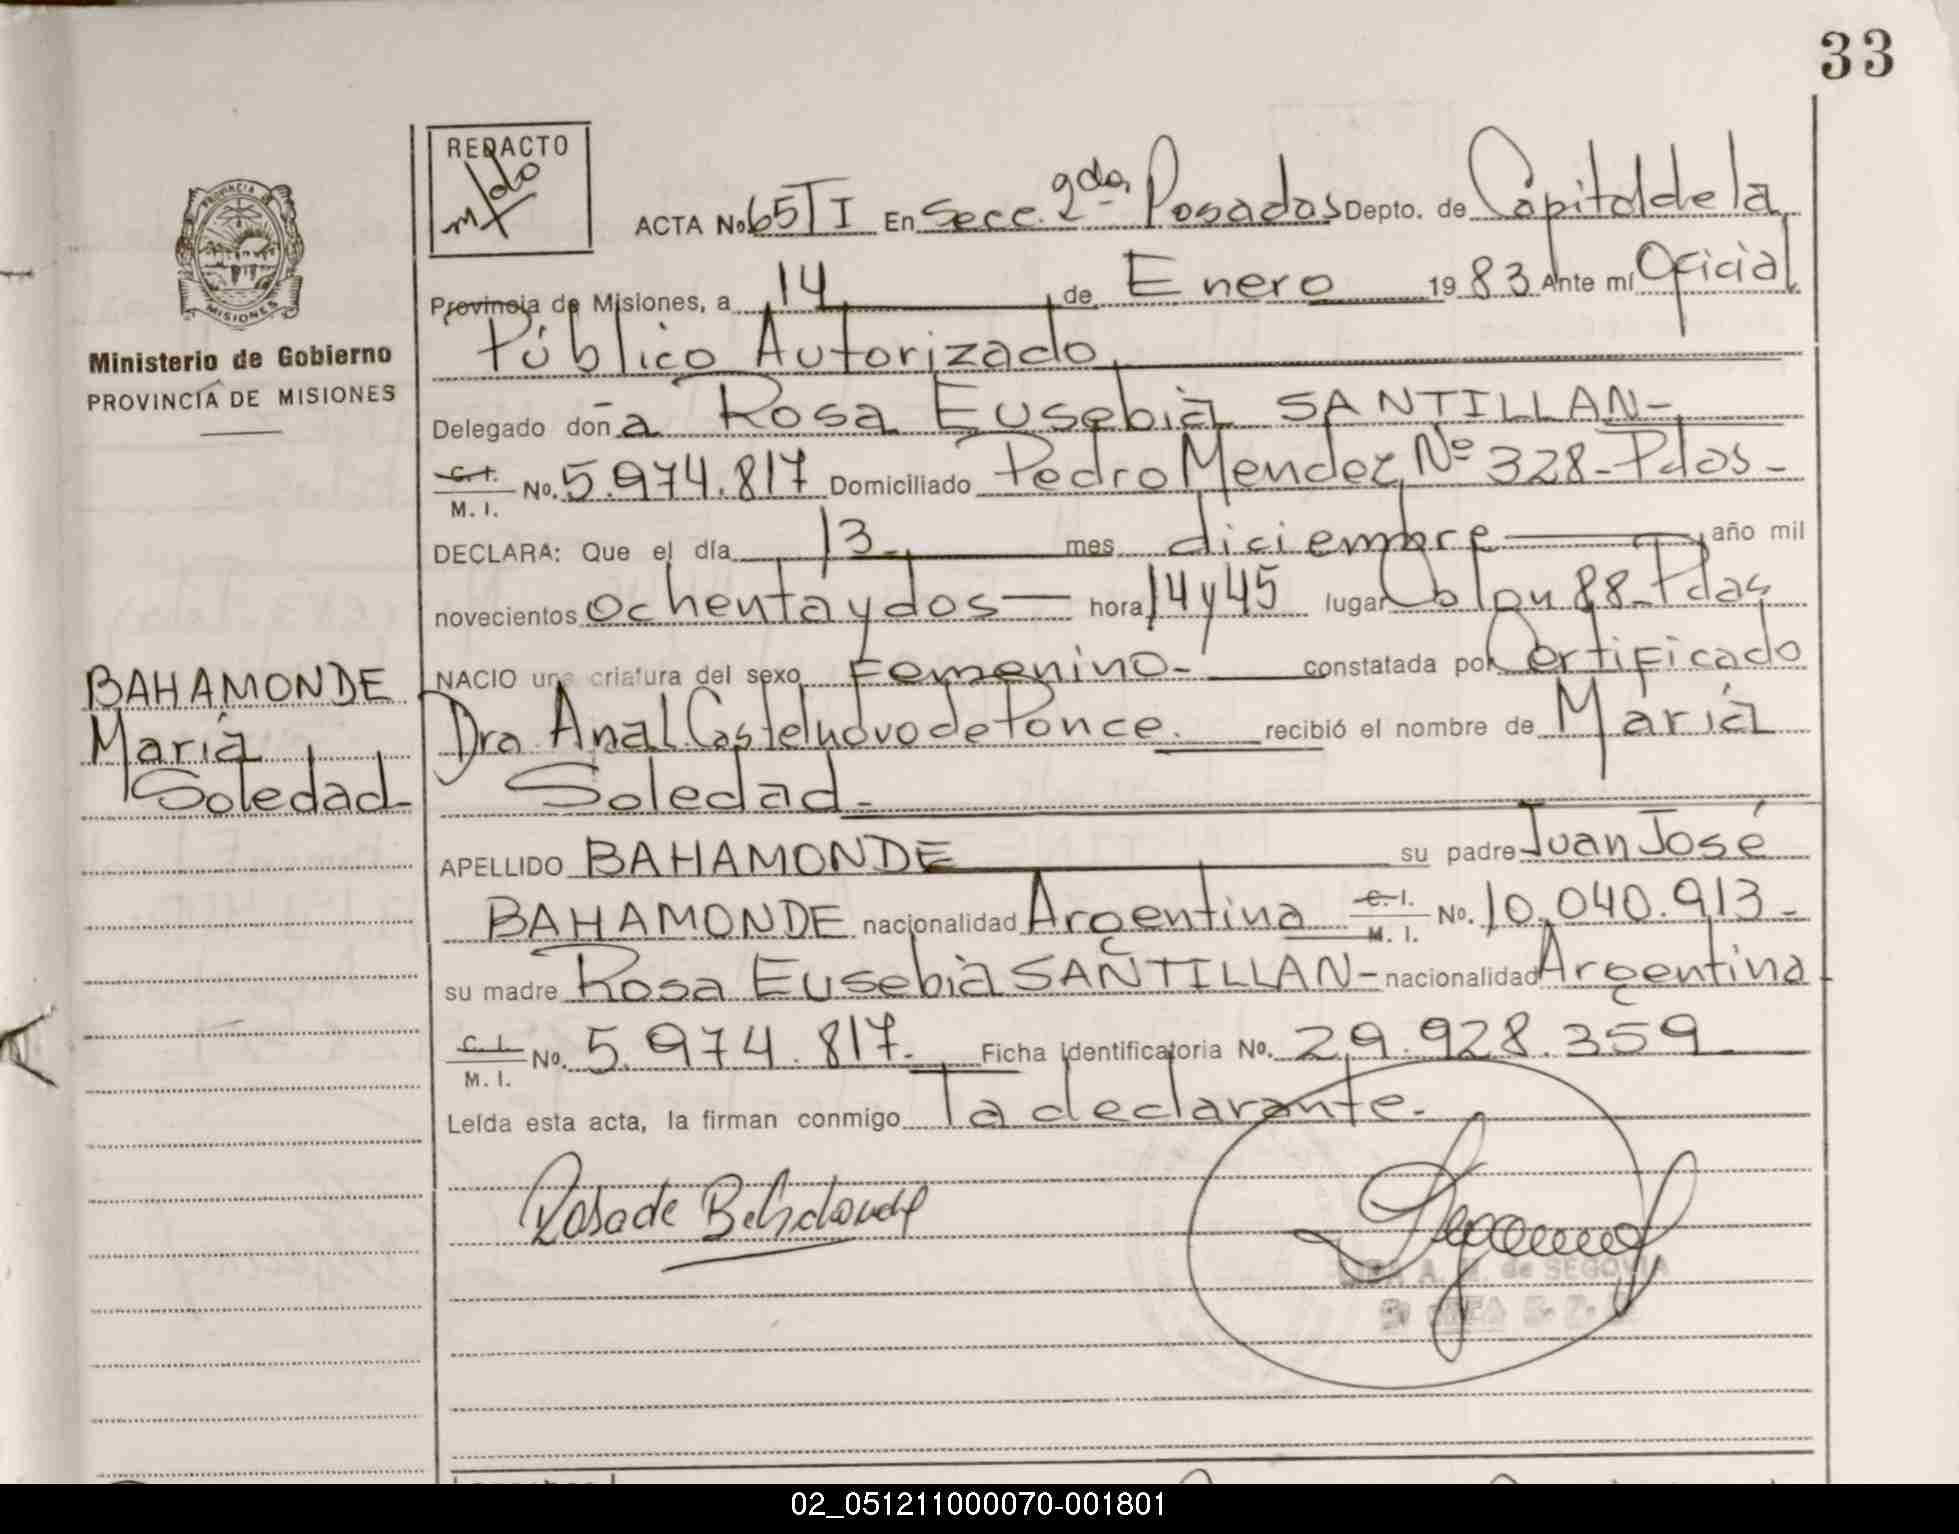 33
REDACTO
PROVINCIA DE
MISIONES
Ministerio de Gobierno
PROVINCIA DE MISIONES
ACTA No. 65 T I En Secc. 2da. Posadas Depto. de Capital de la
Provincia de Misiones, a 14 de Enero 1983 Ante mí Oficial
Público Autorizado
Delegado doña Rosa Eusebia SANTILLAN-
C. I. / M. I. No. 5.974.817 Domiciliado Pedro Mendez Nº 328-Pdas-
DECLARA: Que el día 13 mes diciembre año mil
novecientos ochenta y dos hora 14 y 45 lugar Colon 88-Pdas
NACIO una criatura del sexo Femenino- constatada por Certificado
Dra. Ana L. Castelnovo de Ponce. recibió el nombre de María
Soledad.
BAHAMONDE
María
Soledad
APELLIDO BAHAMONDE su padre Juan José
BAHAMONDE nacionalidad Argentina C. I. / M. I. No. 10.040.913-
su madre Rosa Eusebia SANTILLAN- nacionalidad Argentina
C. I. / M. I. No. 5.974.817. Ficha identificatoria No. 29.928.359
Leída esta acta, la firman conmigo la declarante.
Rosa de Bahamonde
A. de SEGOVIA
02_051211000070-001801